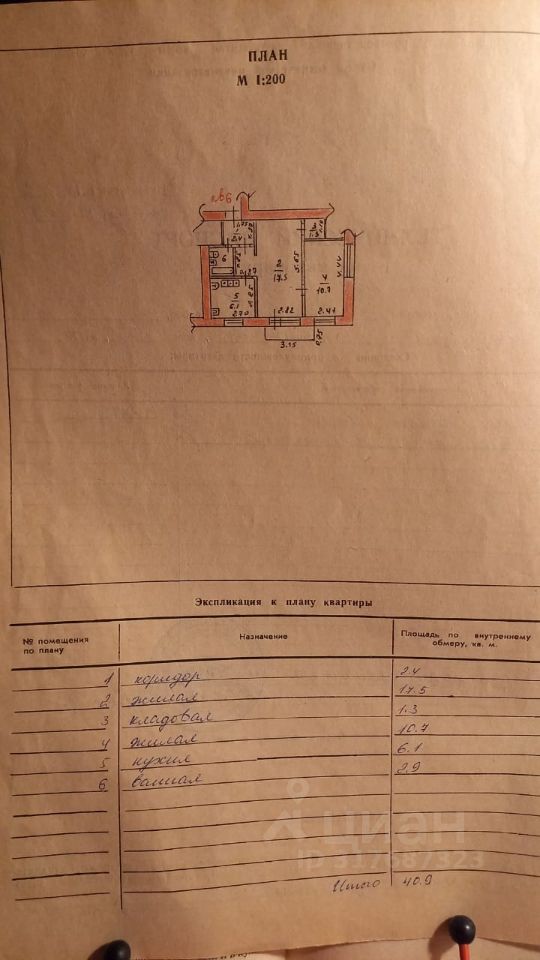 ПЛАН
М 1:200
кв6
1
2.4
1.75
6
2
17.5
5.65
3
1.3
4
10.7
4.44
5
6.1
2.70
2.82
2.41
3.15
0.75
Экспликация к плану квартиры
№ помещения по плану Назначение Площадь по внутреннему обмеру, кв. м.
1 коридор 2.4
2 жилая 17.5
3 кладовая 1.3
4 жилая 10.7
5 кухня 6.1
6 ванная 2.9
Итого 40.9
циан
ID 317687323